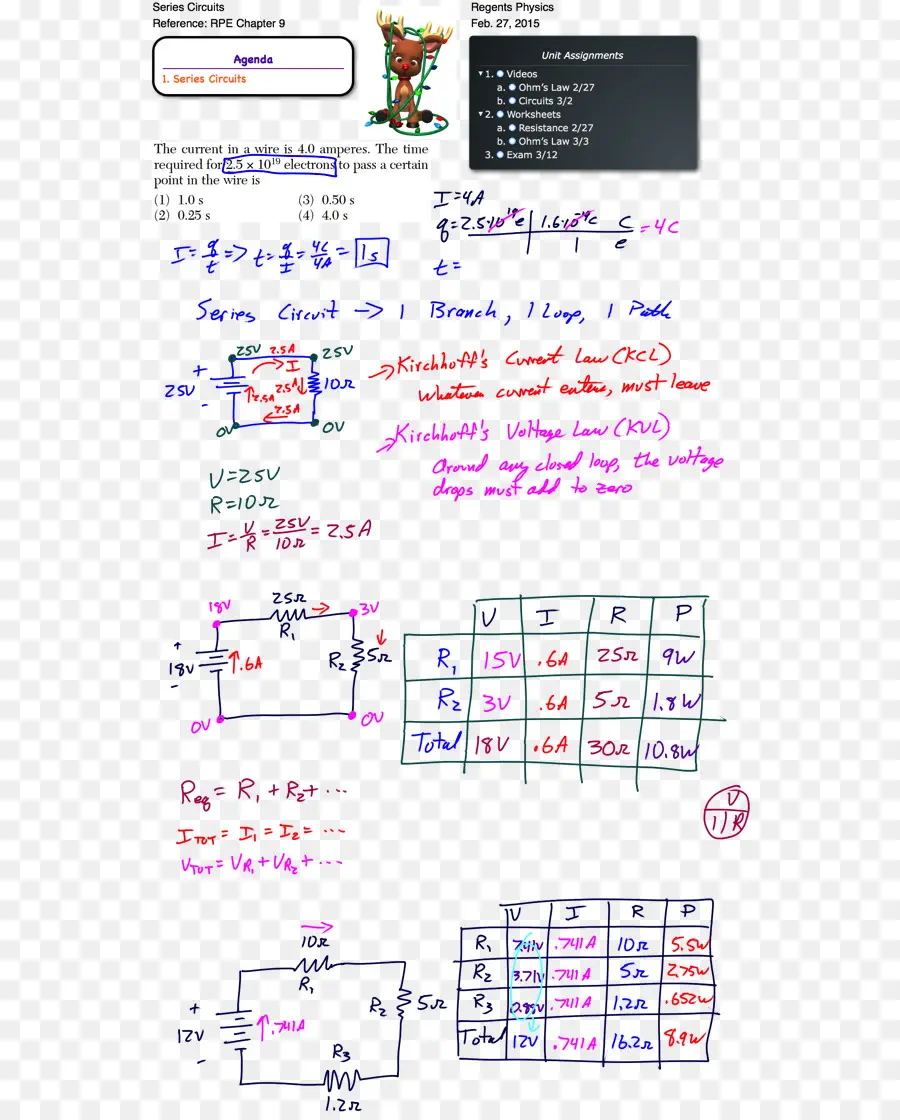 Series Circuits
Reference: RPE Chapter 9
Regents Physics
Feb. 27, 2015
Agenda
1. Series Circuits
Unit Assignments
1. Videos
a. Ohm's Law 2/27
b. Circuits 3/2
2. Worksheets
a. Resistance 2/27
b. Ohm's Law 3/3
3. Exam 3/12
The current in a wire is 4.0 amperes. The time
required for 2.5 × 10¹⁹ electrons to pass a certain
point in the wire is
(1) 1.0 s
(3) 0.50 s
(2) 0.25 s
(4) 4.0 s
I=4A
q=2.5·10¹⁹e | 1.6·10⁻¹⁹C C = 4C
1 e
t=
I = q/t => t = q/I = 4C/4A = 1s
Series Circuit -> 1 Branch, 1 Loop, 1 Path
25V 2.5A 25V
+ I
25V 2.5A 2.5A 10Ω
- 2.5A
0V 0V
-> Kirchhoff's Current Law (KCL)
Whatever current enters, must leave
-> Kirchhoff's Voltage Law (KVL)
Around any closed loop, the voltage
drops must add to zero
V=25V
R=10Ω
I = V/R = 25V/10Ω = 2.5A
25Ω
18V 3V
R₁
+
18V .6A R₂ 5Ω
-
0V 0V
V I R P
R₁ 15V .6A 25Ω 9W
R₂ 3V .6A 5Ω 1.8W
Total 18V .6A 30Ω 10.8W
Req = R₁ + R₂ + ...
ITOT = I₁ = I₂ = ...
VTOT = VR₁ + VR₂ + ...
V
I | R
10Ω
R₁
R₂ 5Ω
+
12V .741A
-
R₃
1.2Ω
V I R P
R₁ 7.41V .741A 10Ω 5.5W
R₂ 3.71V .741A 5Ω 2.75W
R₃ .741A 1.2Ω .652W
Total 12V .741A 16.2Ω 8.9W